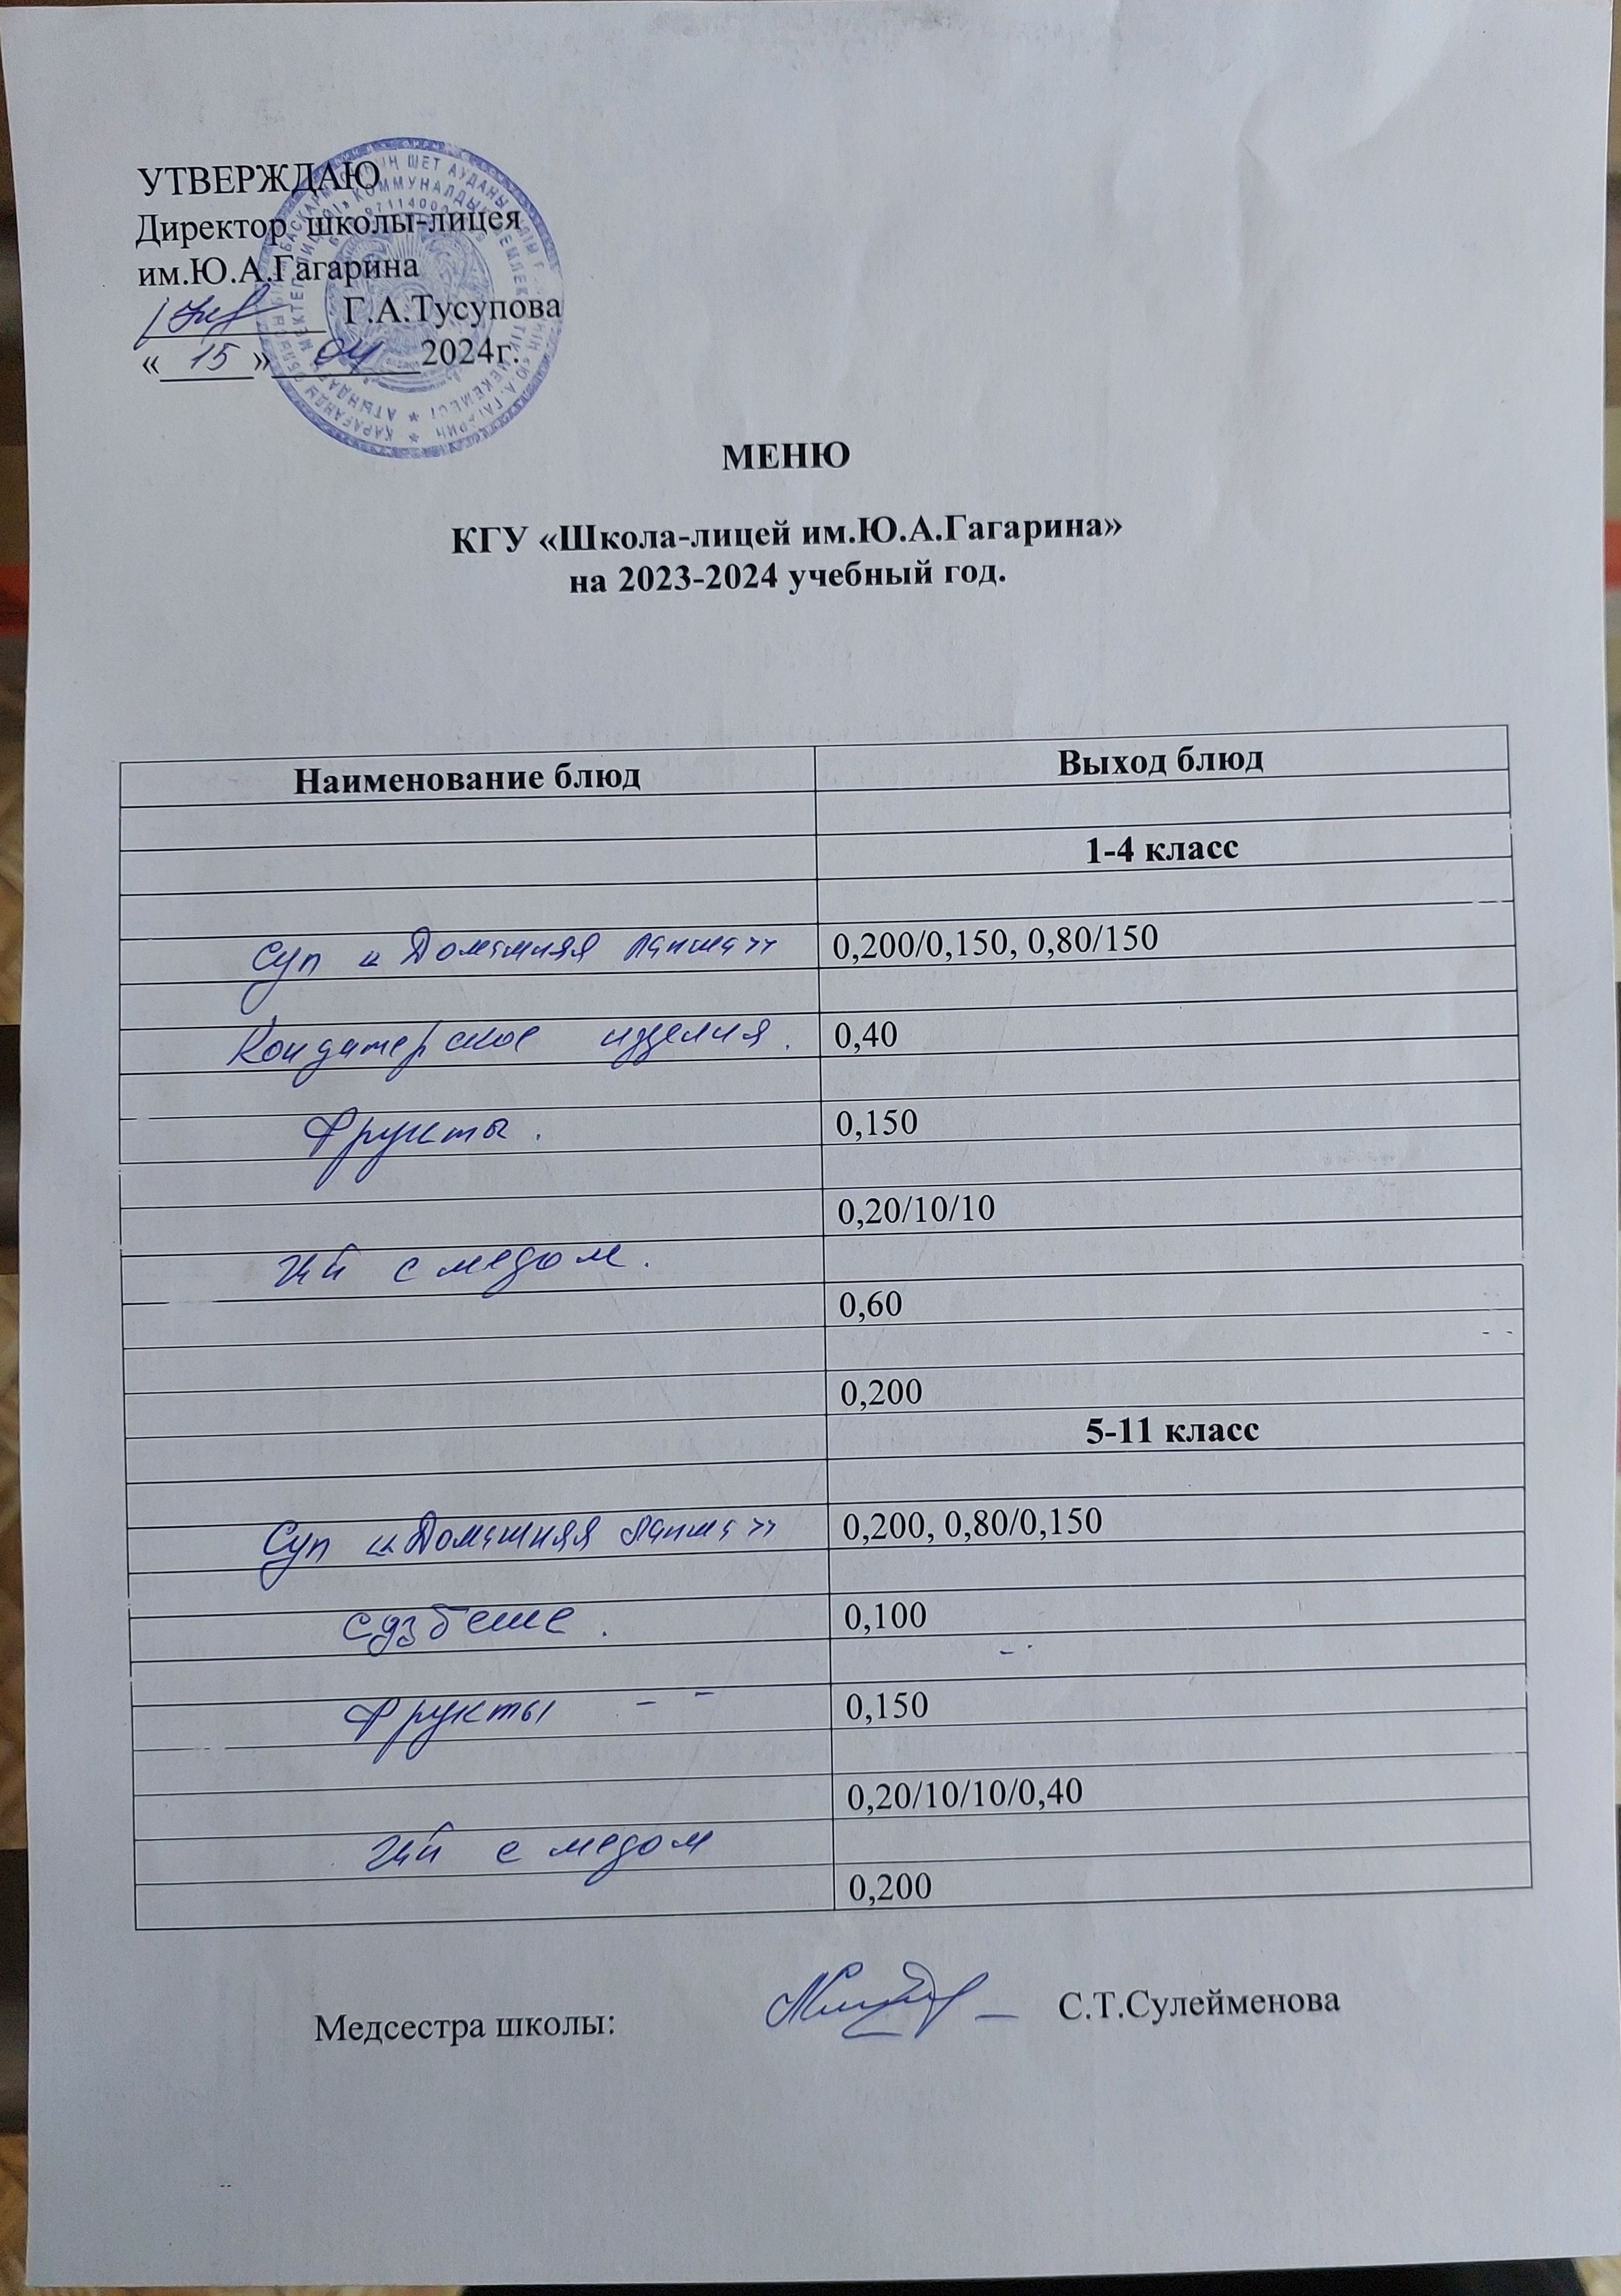 УТВЕРЖДАЮ
Директор школы-лицея
им.Ю.А.Гагарина
Г.А.Тусупова
« 15 » 04 2024г.
МЕНЮ
КГУ «Школа-лицей им.Ю.А.Гагарина»
на 2023-2024 учебный год.
Наименование блюд Выход блюд
1-4 класс
Суп «Домашняя лапша» 0,200/0,150, 0,80/150
Кондитерское изделия. 0,40
Фрукты. 0,150
0,20/10/10
Чай с медом.
0,60
0,200
5-11 класс
Суп «Домашняя лапша» 0,200, 0,80/0,150
0,100
Фрукты - - 0,150
0,20/10/10/0,40
Чай с медом
0,200
Медсестра школы: С.Т.Сулейменова